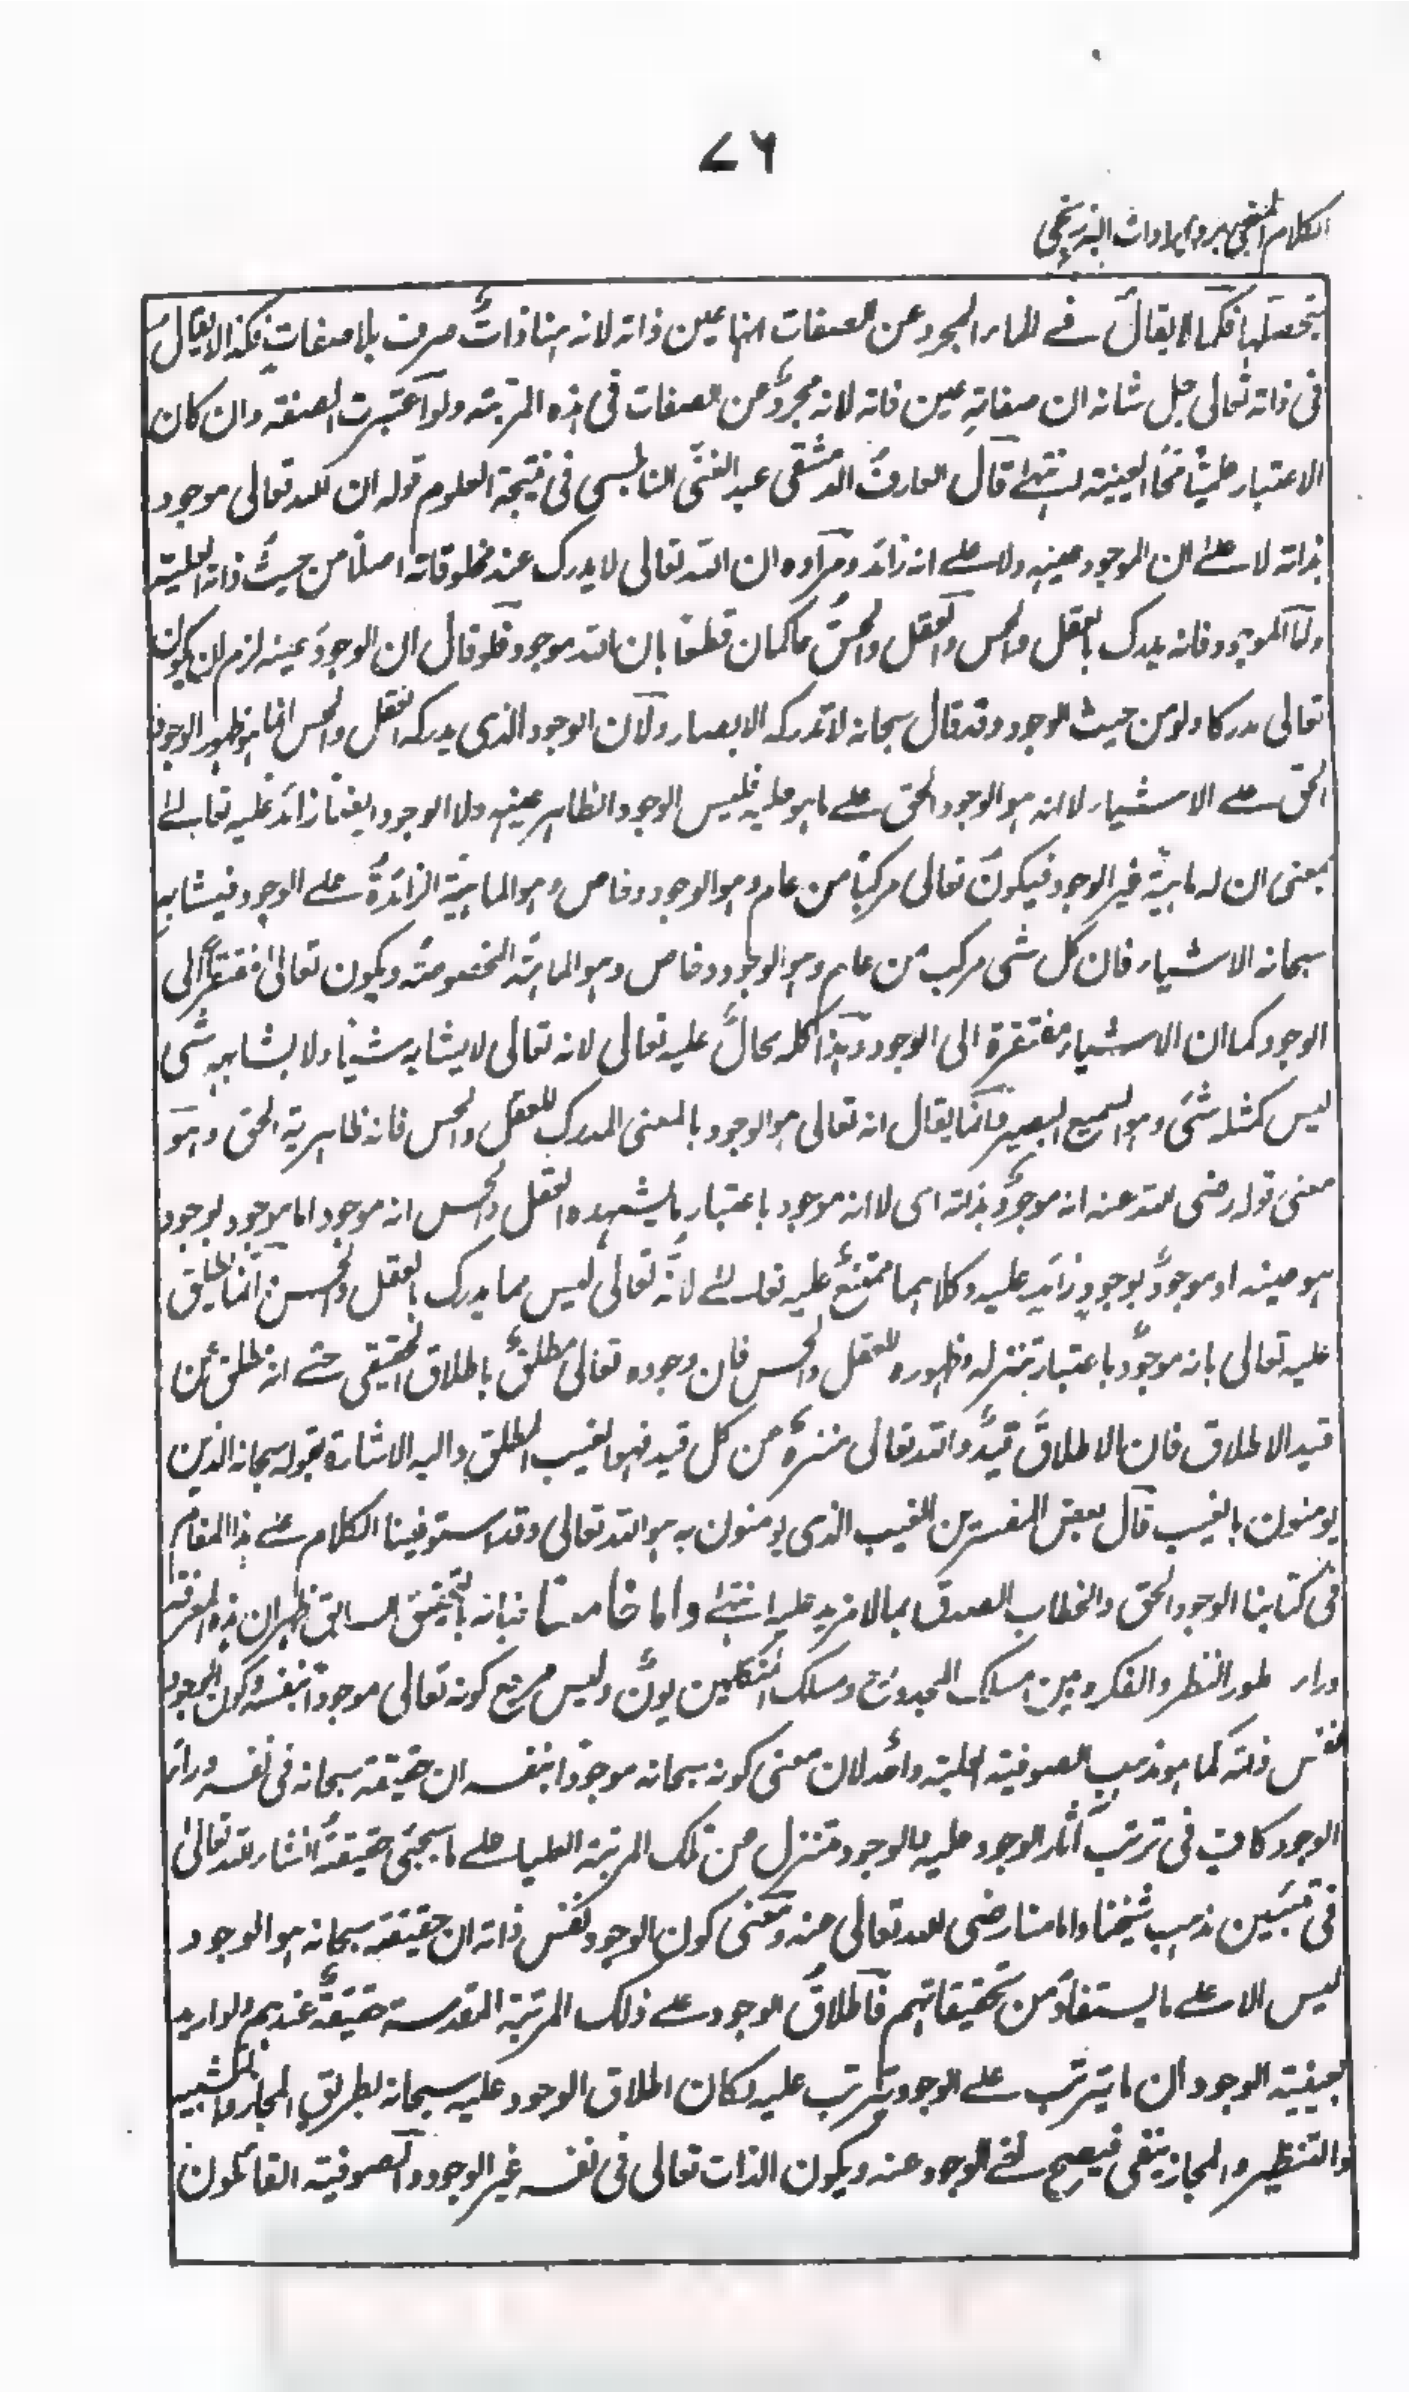 ٧٦
الكلام المنجي برد ايرادات البرزنجي
بتحصلها فكما لا يقال في الماء المجرد عن الصفات انها عين ذاته لانه هنا ذات صرف بلا صفات فكذا لا يقال
في ذاته تعالى جل شانه ان صفاته عين ذاته لانه مجرد عن الصفات في هذه المرتبة ولو اعتبرت الصفة وان كان
الاعتبار علميا فما العينية انتهى قال العارف الدمشقي عبد الغني النابلسي في نتيجة العلوم قوله ان الله تعالى موجود
بذاته لا على ان الموجود عينه ولا على انه زائد ومراده ان الله تعالى لا يدرك عند مخلوقاته اصلا من حيث ذاته العلية
واما الموجود فانه يدرك بالعقل والحس والعقل والحس حاكمان قطعا بان الله موجود فلو قال ان الوجود عينه لزم ان يكون
تعالى مدركا ولو من حيث الوجود وقد قال سبحانه لا تدركه الابصار ولان الوجود الذي يدركه العقل والحس انما هو ظهور الوجود
الحق على الاشياء لا انه هو الوجود الحق على ما هو عليه فليس الوجود الظاهر عينه ولا الوجود ايضا زائد عليه تعالى
بمعنى ان له ماهية غير الوجود فيكون تعالى مركبا من عام وهو الوجود وخاص وهو الماهية الزائدة على الوجود فيشابه
سبحانه الاشياء فان كل شى مركب من عام وهو الوجود وخاص وهو الماهية المخصوصة ويكون تعالى مفتقرا الى
الوجود كما ان الاشياء مفتقرة الى الوجود وهذا كله محال عليه تعالى لانه تعالى لا يشابه شيئا ولا يشابهه شى
ليس كمثله شى وهو السميع البصير فانما يقال انه تعالى هو الوجود بالمعنى المدرك للعقل والحس فانه ظاهرية الحق وهو
معنى قوله رضي الله عنه انه موجود بذاته اى لا انه موجود باعتبار ما يشهده العقل والحس انه موجود اما موجود بوجود
هو عينه او موجود بوجود زايد عليه وكلاهما ممتنع عليه تعالى لانه تعالى ليس مما يدرك بالعقل والحس انما يطلق
عليه تعالى بانه موجود باعتبار تنزله وظهوره للعقل والحس فان وجوده تعالى مطلق باطلاق الحقيقي حتى انه مطلق عن
قيد الاطلاق فان الاطلاق قيد والله تعالى منزه من كل قيد فهو الغيب المطلق واليه الاشارة بقوله سبحانه الذين
يومنون بالغيب قال بعض المفسرين الغيب الذي يومنون به هو الله تعالى وقد استوفينا الكلام على هذا المقام
في كتابنا الوجود الحق والخطاب الصدق بما لا مزيد عليه انتهى واما خامسا فبانه بالتحقيق السابق ظهر ان هذه المعرفة
وراء طور النظر والفكر وبين مسلك المجددين ومسلك المتكلمين بون وليس مرجع كونه تعالى موجودا بنفسه وكون الوجود
نفس ذاته كما هو مذهب الصوفية العلية واحد لان معنى كونه سبحانه موجودا بنفسه ان حقيقة سبحانه في نفسه وراء
الوجود كاف في ترتب آثار الوجود عليه والوجود متنزل من تلك المرتبة العليا على ما سيجئى حقيقة انشاء الله تعالى
في تبيين مذهب شيخنا وامامنا رضى الله تعالى عنه ومعنى كون الوجود نفس ذاته ان حقيقة سبحانه هو الوجود
ليس الا على ما يستفاد من تحقيقاتهم فاطلاق الوجود على ذلك المرتبة المقدسة حقيقة عندهم ولو اريد
بعينية الوجود ان ما يترتب على الوجود يترتب عليه لكان اطلاق الوجود عليه سبحانه بطريق المجاز والتشبيه
والتنظير والمجاز ينفى فيصح نفى الوجود عنه ويكون الذات تعالى في نفسه غير الوجود والصوفية القائلون